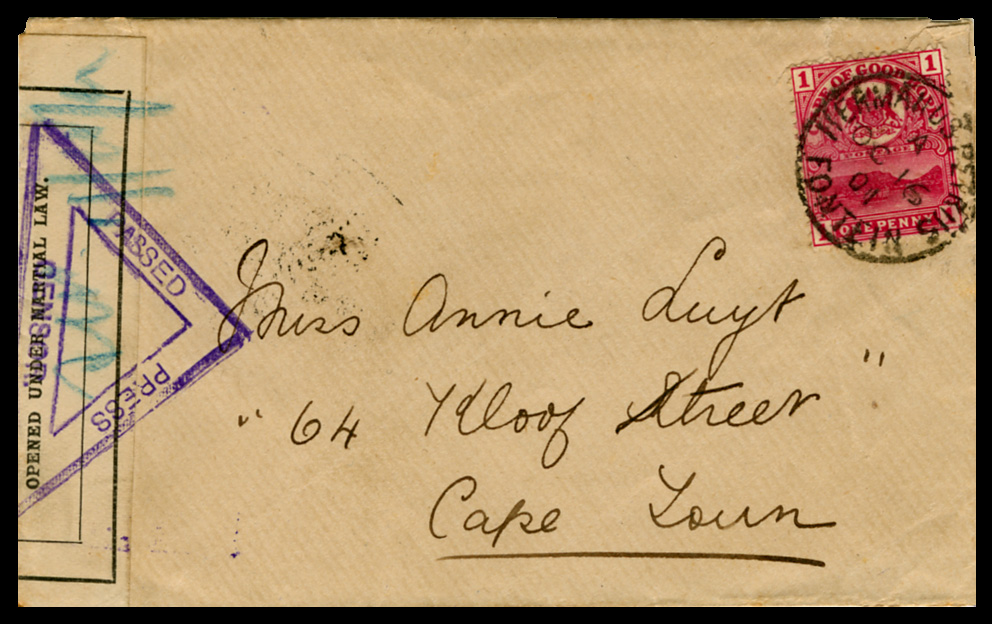 OPENED UNDER MARTIAL LAW.
PASSED
PRESS
CENSOR
1 1
CAPE OF GOOD HOPE
POSTAGE
ONE PENNY
A
OC 15
01
Miss Annie Luyt
" 64 Kloof Street "
Cape Town